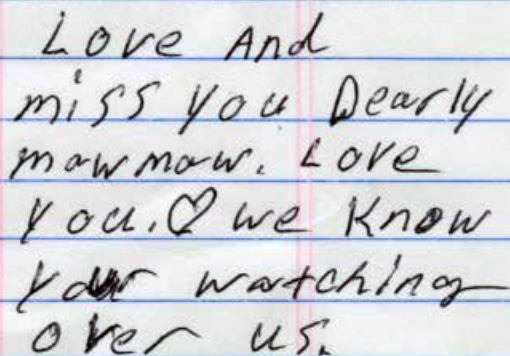 Love And
miss you Dearly
mawmaw. Love
you.♡ we Know
your watching
over us.